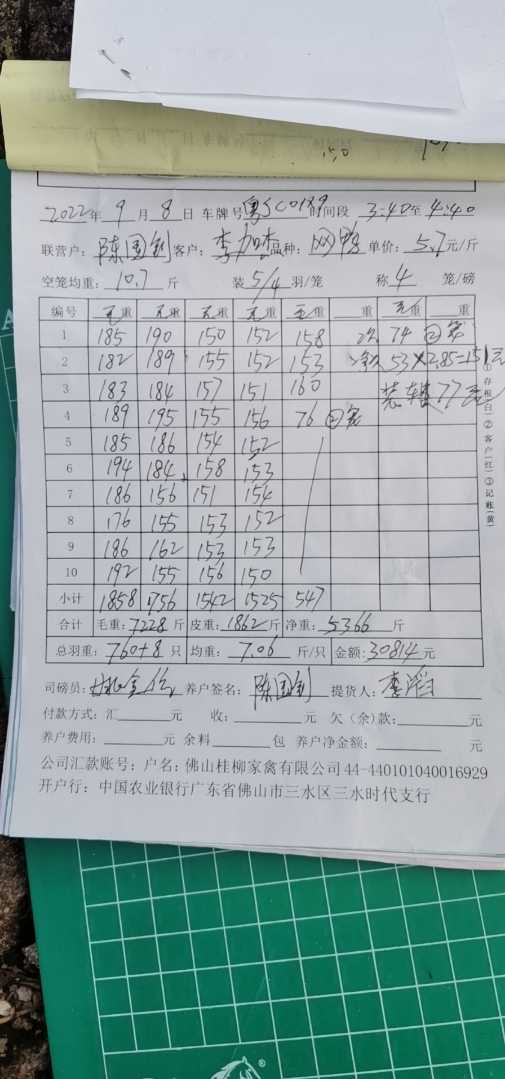 2022年 9 月 8 日 车牌号 粤SC0189 时间段 3:40至4:40
联营户: 陈国钊 客户: 李 品种: 网鸭 单价: 5.7元/斤
空笼均重: 10.7 斤 装 5/4 羽/笼 称 4 笼/磅
编号 毛重 毛重 毛重 毛重 毛重 重 毛重 重
1 185 190 150 152 158 74
2 182 189 155 152 153 53×2.85=151元
3 183 184 157 151 160 装车 77
4 189 195 155 156 76
5 185 186 154 152
6 194 184 158 153
7 186 156 151 154
8 176 155 153 152
9 186 162 153 153
10 192 155 156 150
小计 1858 1756 1542 1525 547
合计 毛重: 7228 斤 皮重: 1862斤 净重: 5366 斤
总羽重: 760+8 只 均重: 7.06 斤/只 金额: 30814元
司磅员: 养户签名: 陈国钊 提货人: 李
付款方式: 汇 元 收: 元 欠(余)款: 元
养户费用: 元 余料 包 养户净金额: 元
公司汇款账号: 户名: 佛山桂柳家禽有限公司 44-440101040016929
开户行: 中国农业银行广东省佛山市三水区三水时代支行
①存根(白)②客户(红)③记账(黄)